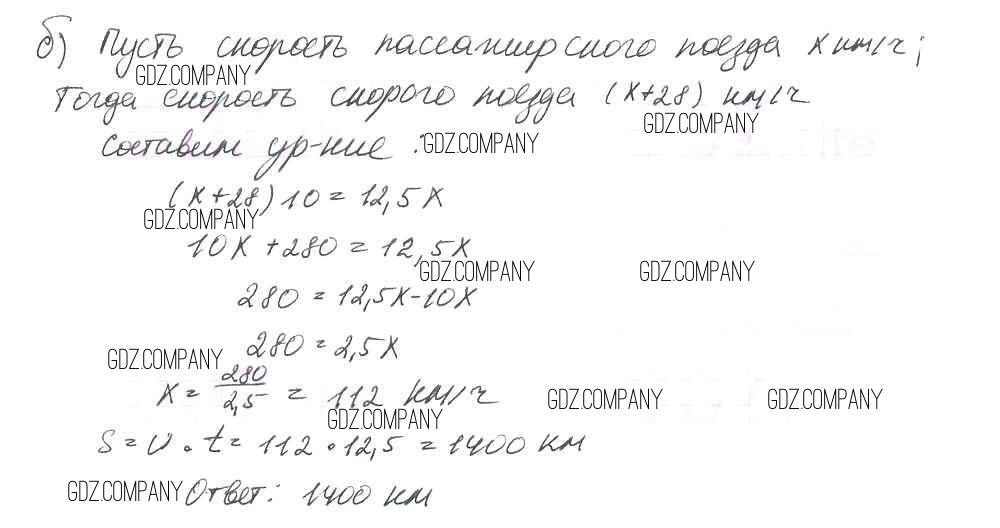 б) Пусть скорость пассажирского поезда x км/ч;
GDZ.COMPANY
Тогда скорость скорого поезда (x+28) км/ч
GDZ.COMPANY
составим ур-ние : GDZ.COMPANY
(x+28)10 = 12,5x
GDZ.COMPANY
10x + 280 = 12,5x
GDZ.COMPANY GDZ.COMPANY
280 = 12,5x - 10x
280 = 2,5x
GDZ.COMPANY
x = 280/2,5 = 112 км/ч
GDZ.COMPANY GDZ.COMPANY
GDZ.COMPANY
S = υ · t = 112 · 12,5 = 1400 км
GDZ.COMPANY Ответ: 1400 км